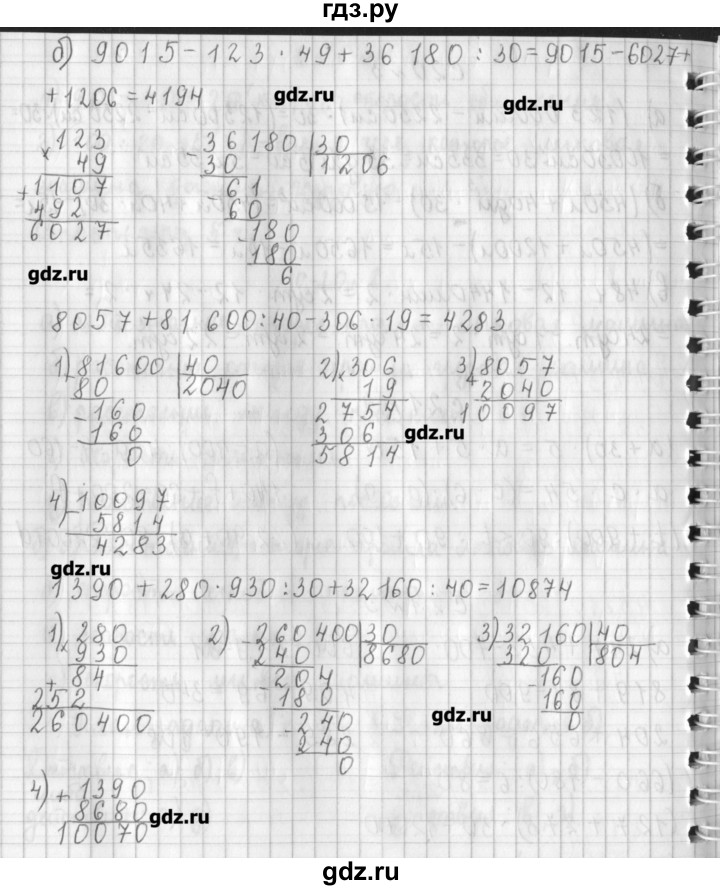 гдз.ру
б) 9015-123·49+36 180:30=9015-6027+
+1206=4194
gdz.ru
gdz.ru
× 123
49
+ 1107
492
6027
- 36180 | 30
30 | 1206
61
- 60
- 180
180
6
gdz.ru
8057+81 600:40-306·19=4283
1) - 81600 | 40
80 | 2040
- 160
160
0
2) × 306
19
2754
306
5814
3) + 8057
2040
10097
gdz.ru
4) - 10097
5814
4283
gdz.ru
1390+280·930:30+32160:40=10874
1) × 280
930
+ 84
252
260400
2) 260400 | 30
240 | 8680
- 204
180
- 240
240
0
3) 32160 | 40
320 | 804
160
160
0
gdz.ru
4) + 1390
8680
10070
gdz.ru
gdz.ru